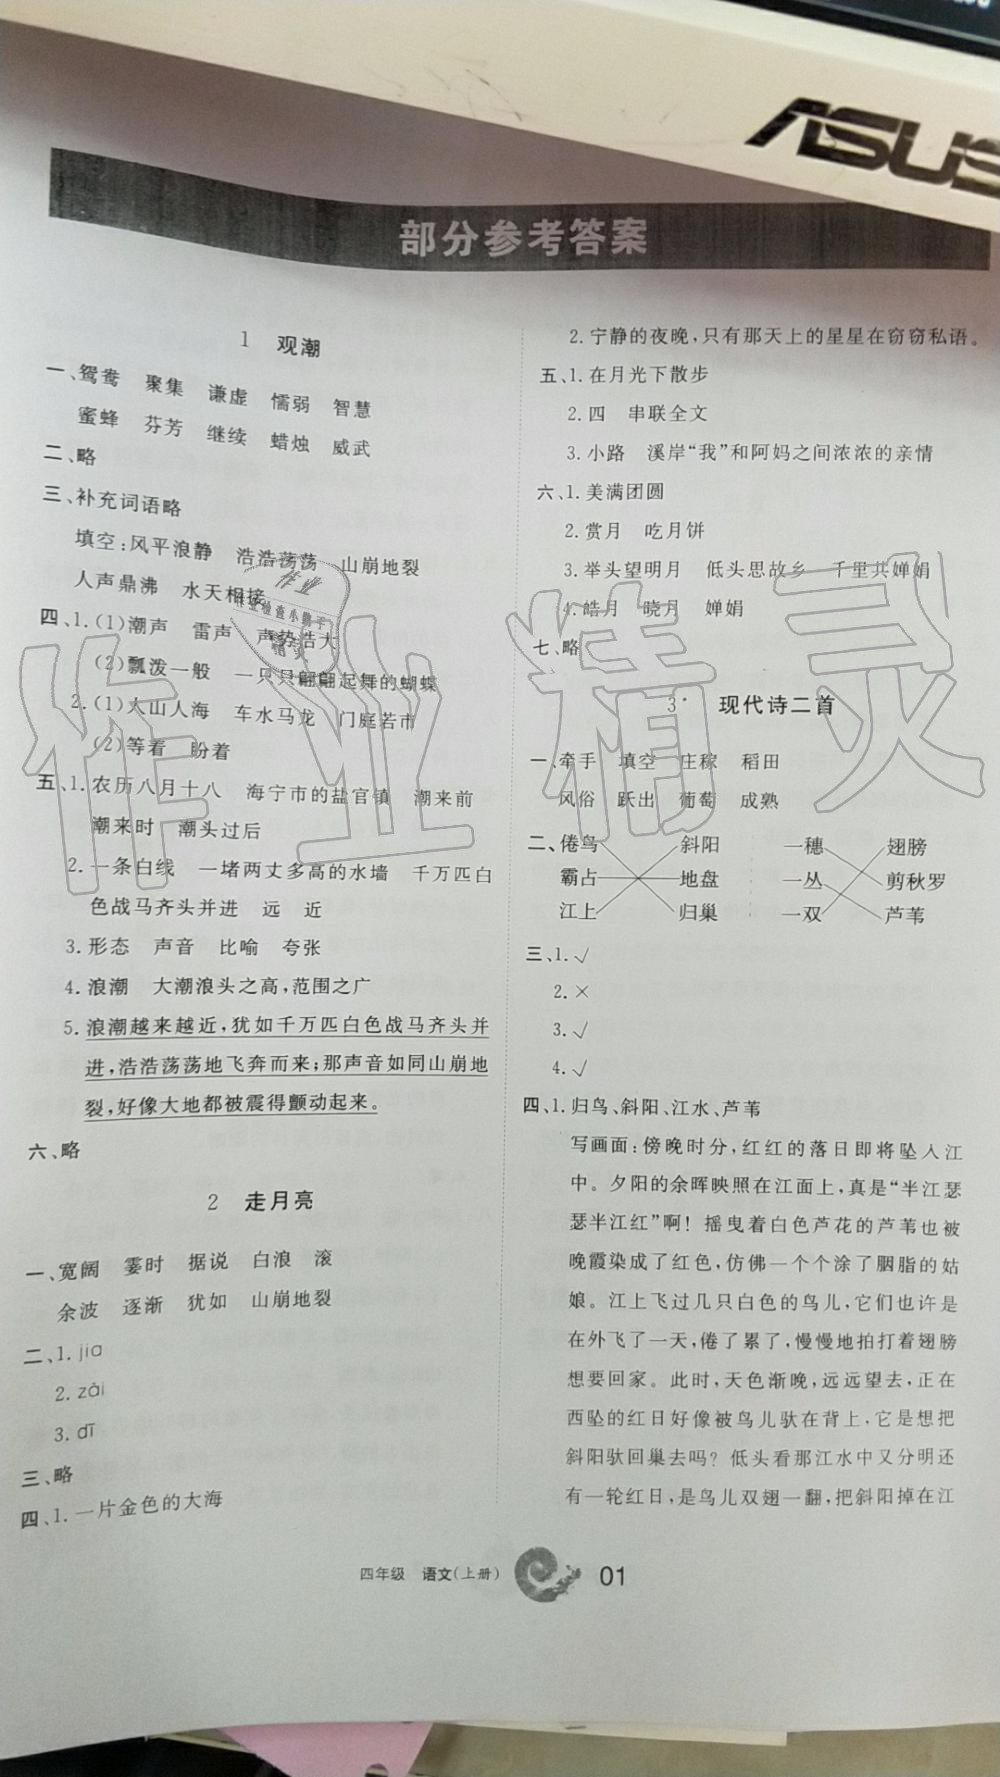 ASUS
部分参考答案
1 观潮
一、鸳鸯 聚集 谦虚 懦弱 智慧
蜜蜂 芬芳 继续 蜡烛 威武
二、略
三、补充词语略
填空:风平浪静 浩浩荡荡 山崩地裂
人声鼎沸 水天相接
四、1.(1)潮声 雷声 声势浩大
(2)瓢泼一般 一只只翩翩起舞的蝴蝶
2.(1)人山人海 车水马龙 门庭若市
(2)等着 盼着
五、1.农历八月十八 海宁市的盐官镇 潮来前
潮来时 潮头过后
2.一条白线 一堵两丈多高的水墙 千万匹白
色战马齐头并进 远 近
3.形态 声音 比喻 夸张
4.浪潮 大潮浪头之高,范围之广
5.浪潮越来越近,犹如千万匹白色战马齐头并
进,浩浩荡荡地飞奔而来;那声音如同山崩地
裂,好像大地都被震得颤动起来。
六、略
2 走月亮
一、宽阔 霎时 据说 白浪 滚
余波 逐渐 犹如 山崩地裂
二、1.jia
2.zài
3.dī
三、略
四、1.一片金色的大海
2.宁静的夜晚,只有那天上的星星在窃窃私语。
五、1.在月光下散步
2.四 串联全文
3.小路 溪岸“我”和阿妈之间浓浓的亲情
六、1.美满团圆
2.赏月 吃月饼
3.举头望明月 低头思故乡 千里共婵娟
4.皓月 晓月 婵娟
七、略
3* 现代诗二首
一、牵手 填空 庄稼 稻田
风俗 跃出 葡萄 成熟
二、倦鸟 斜阳 一穗 翅膀
霸占 地盘 一丛 剪秋罗
江上 归巢 一双 芦苇
三、1.√
2.×
3.√
4.√
四、1.归鸟、斜阳、江水、芦苇
写画面:傍晚时分,红红的落日即将坠入江
中。夕阳的余晖映照在江面上,真是“半江瑟
瑟半江红”啊!摇曳着白色芦花的芦苇也被
晚霞染成了红色,仿佛一个个涂了胭脂的姑
娘。江上飞过几只白色的鸟儿,它们也许是
在外飞了一天,倦了累了,慢慢地拍打着翅膀
想要回家。此时,天色渐晚,远远望去,正在
西坠的红日好像被鸟儿驮在背上,它是想把
斜阳驮回巢去吗?低头看那江水中又分明还
有一轮红日,是鸟儿双翅一翻,把斜阳掉在江
四年级 语文(上册) 01
作业精灵
作业
作业检查小帮手
精灵